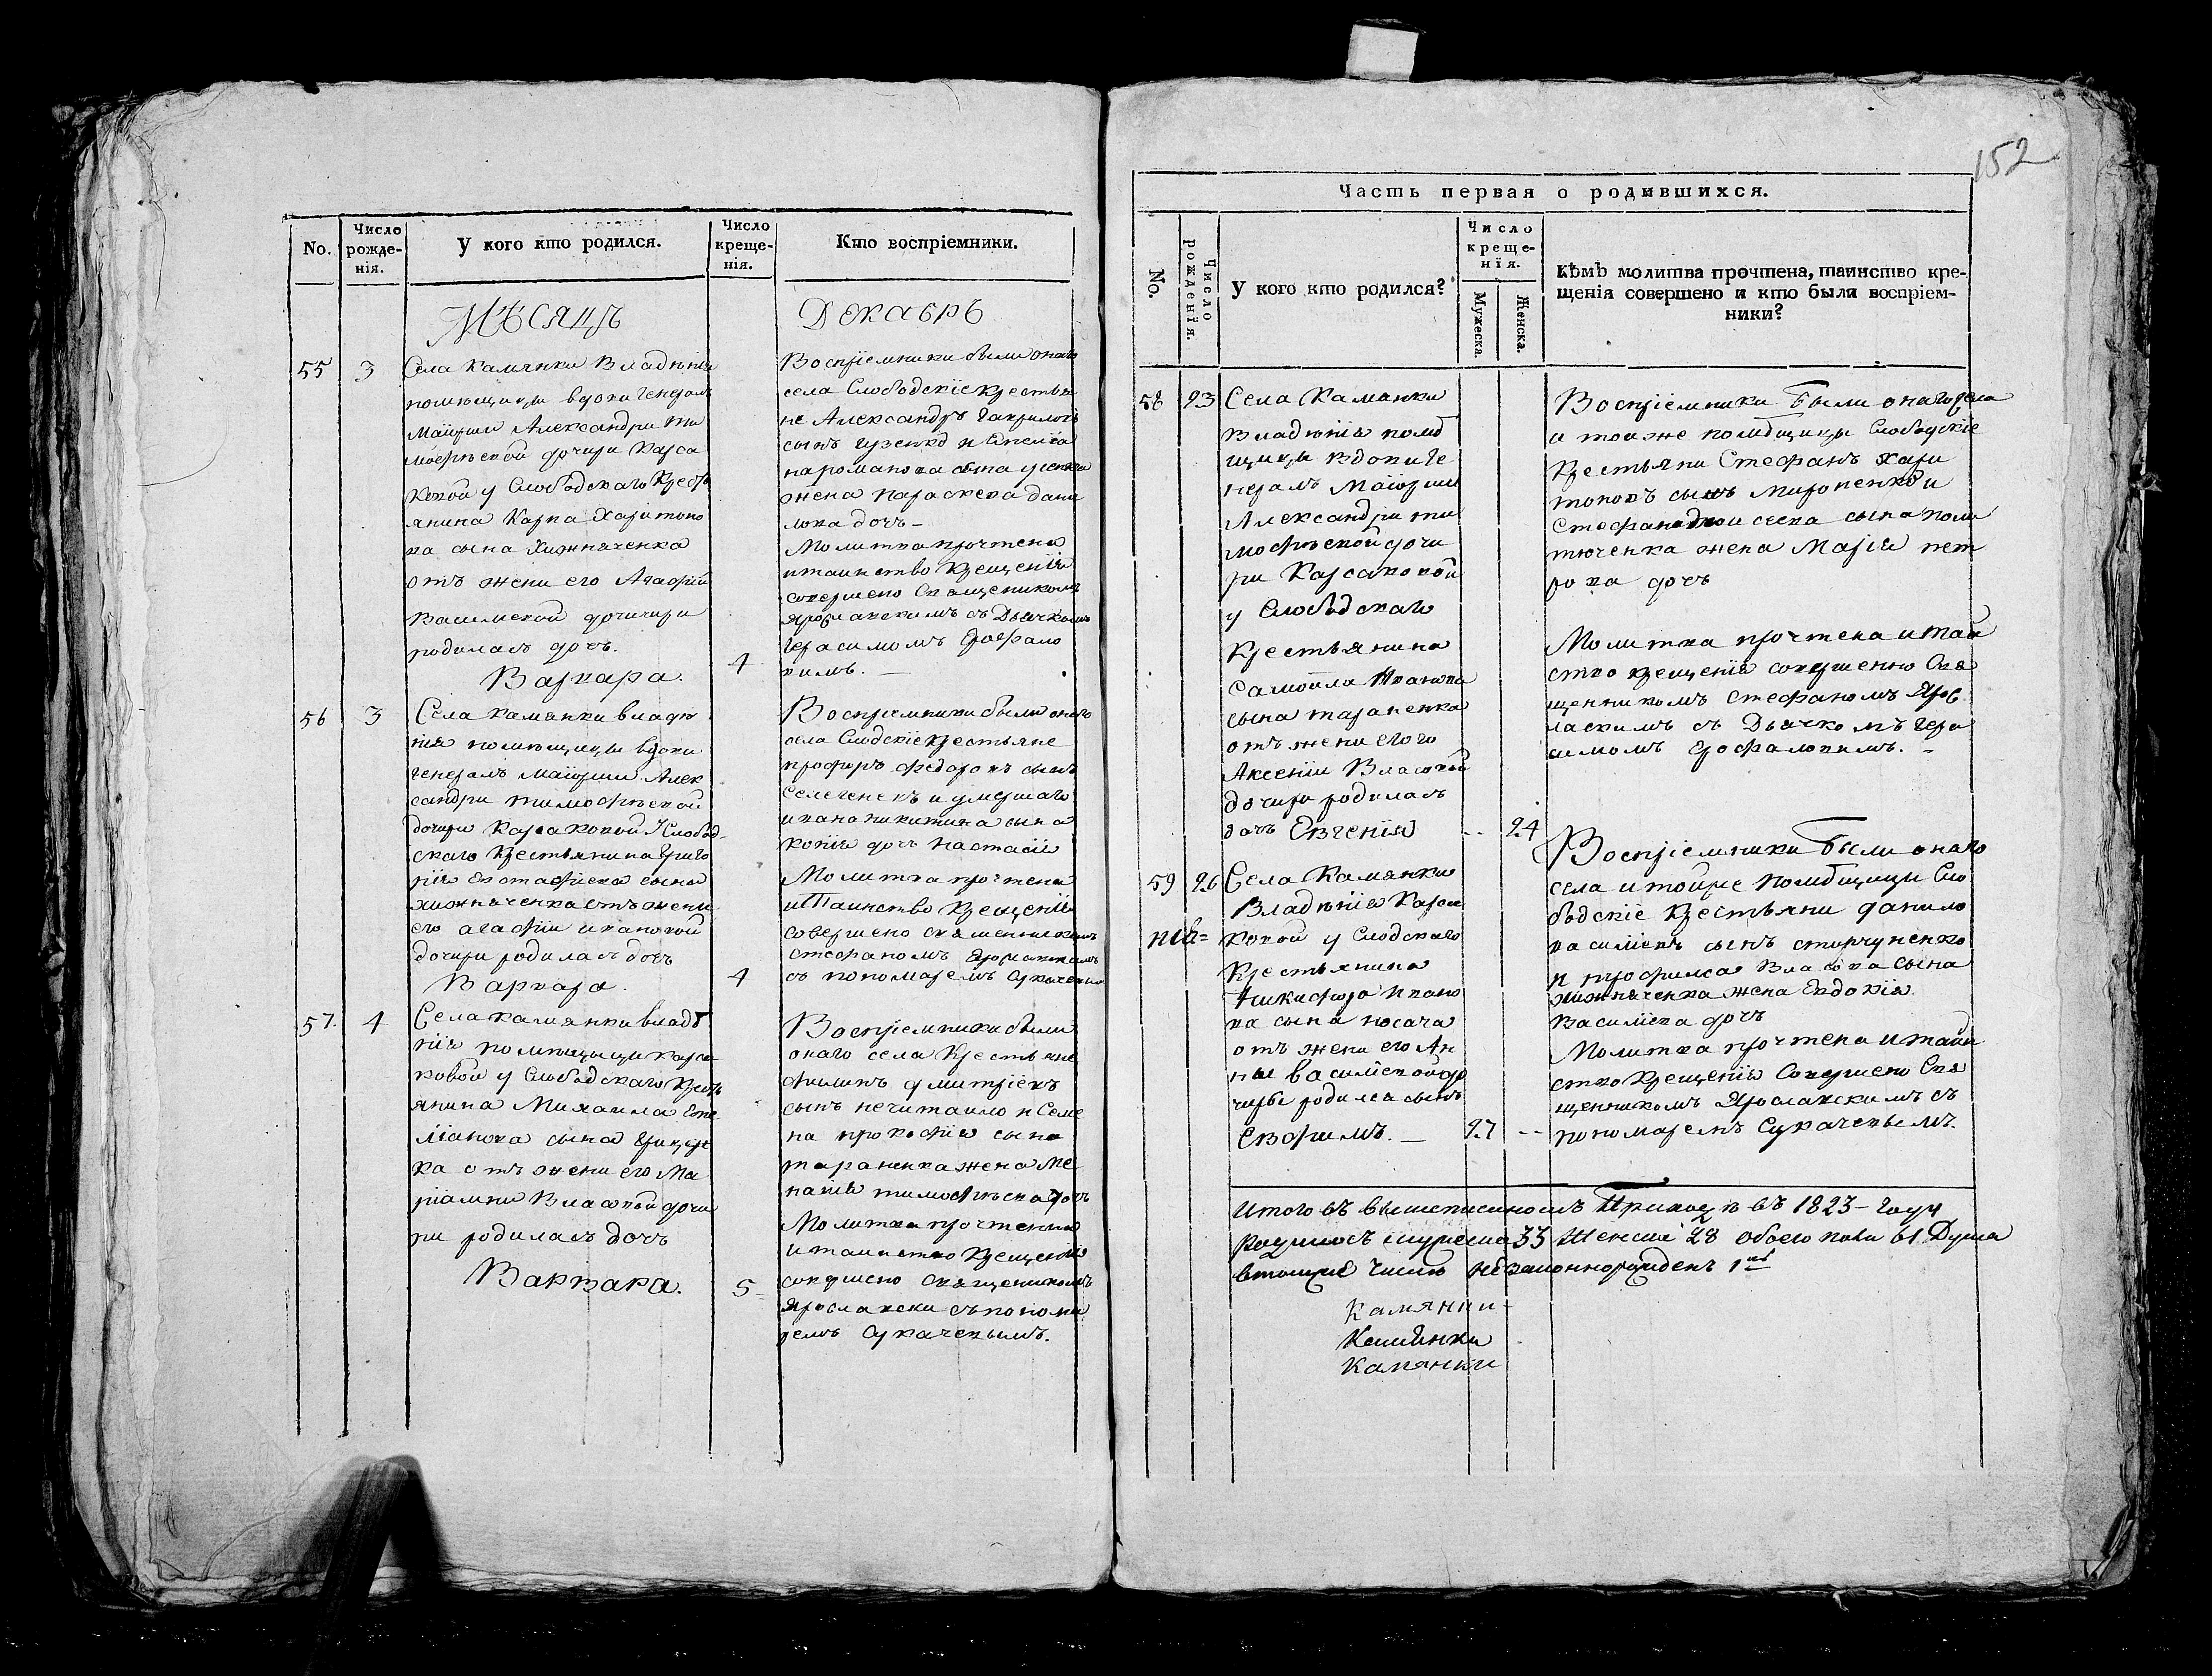 152
No.
Число рожденія.
У кого кто родился.
Число крещенія.
Кто воспріемники.
Мѣсяцъ
Декабрь
55 3
Села Камянки владѣнія
помѣщици вдови генералъ
Маіорши Александри Ти
мофѣевой дочири Карса
ковой у Слободскаго Крестъ
янина Карпа Харитоно
ва сына Хижняченка
отъ жени его Агафіи
Василіевой дочичири
родилась дочъ.
Варвара. 4
Воспріемники были онаго
села Слободскіе крестья
не Александръ Гавриловъ
сынъ Гузенко и
Романова сына
жена Параскева Дани
лова дочъ –
Молитва прочтена
и таинство крещенія
совершено Священикомъ
Ярославскимъ съ Дьячкомъ
Герасимомъ Ерофало
вимъ. —
56 3
Села Камянки владѣ
нія помѣщици вдови
генералъ маіорши Алек
сандри Тимофѣевой
дочири Карсаковой У слобод
скаго крестьянина Григо
рія Евстафіева сына
хижняченка отъ жени
его агафіи ивановой
дочири родилась дочъ
Варвара. 4
Воспріемники были онаго
села Слодскіе крестьяне
Федоровъ сынъ
и умершаго
ивана никитина сына
дочъ Настасія
Молитва прочтена
и Таинство Крещенія
совершено священикомъ
стефаномъ Ярославскимъ
съ пономаремъ Сукачевимъ
57. 4
Села камянки владѣ
нія помѣщици карса
ковой у Слободскаго Крестъ
янина Михаила Еме
ліанова сына
ка отъ жени его Ма
ріамни Власовой дочи
ри родилась дочъ
Варвара. 5
Воспріемники были
онаго села Крестьяне
филипъ дмитріевъ
сынъ нечитаило и Семе
на прокофія сына
тараненка жена Ме
ланія тимофѣева дочъ
Молитва прочтенна
и таинство крещенія
совершено священикомъ
Ярославски съ понома
ремъ Сукачевымъ.
Часть первая о родившихся.
No.
Число рожденія.
У кого кто родился?
Число крещенія.
Мужеска.
Женска.
Кѣмъ молитва прочтена, таинство кре-
щенія совершено и кто были воспріем-
ники?
58 23
Села Камянки
Владѣнія помѣ
щици вдови ге
нералъ Маіорши
Александри ти
мофѣевой дочи
ри Карсаковой
у Слободскаго
крестьянина
Самойла Иванова
сына тараненка
отъ жени его го
Аксеніи Власовой
дочири родилась
дочъ Евгенія -- 24
Воспріемники Были онаго села
и тоиже помѣщици Слободскіе
крестьяни Стефанъ Хари
тоновъ сынъ Мироненко и
сына поли
тюченка жена Марія пет
рова дочъ
Молитва прочтена и таин
ство крещенія совершенно Свя
щенникомъ Стефаномъ Ярос
лавскимъ съ Дьячкомъ Гера
симомъ Ерофаловимъ. –
59 26
Села Камянки
Владѣнія Карса
ковой у Слодскаго
Крестьянина
Никифора Ивано
ва сына носача
отъ жени его Ан
ны василіевой до
чири родился сынъ
Евфимъ. — 27 --
Воспріемники Были онаго
села и тойже помѣщици Сло
бодскіе крестьяни данило
василіевъ сынъ
и трофима Власова сына
хижняченка жена Евдокія
Василіева дочъ
Молитва прочтена и таин
ство крещенія Совершено Свя
щенникомъ Ярославскимъ съ
пономаремъ Сукачевымъ.
Итого въ вышеписаномъ Приходѣ въ 1823 – году
родилосъ мужеска 33 Женска 28 обоего пола 61 Душа
втомже числѣ незаконнорожденъ 1
Камянки -
Камянки
Камянки